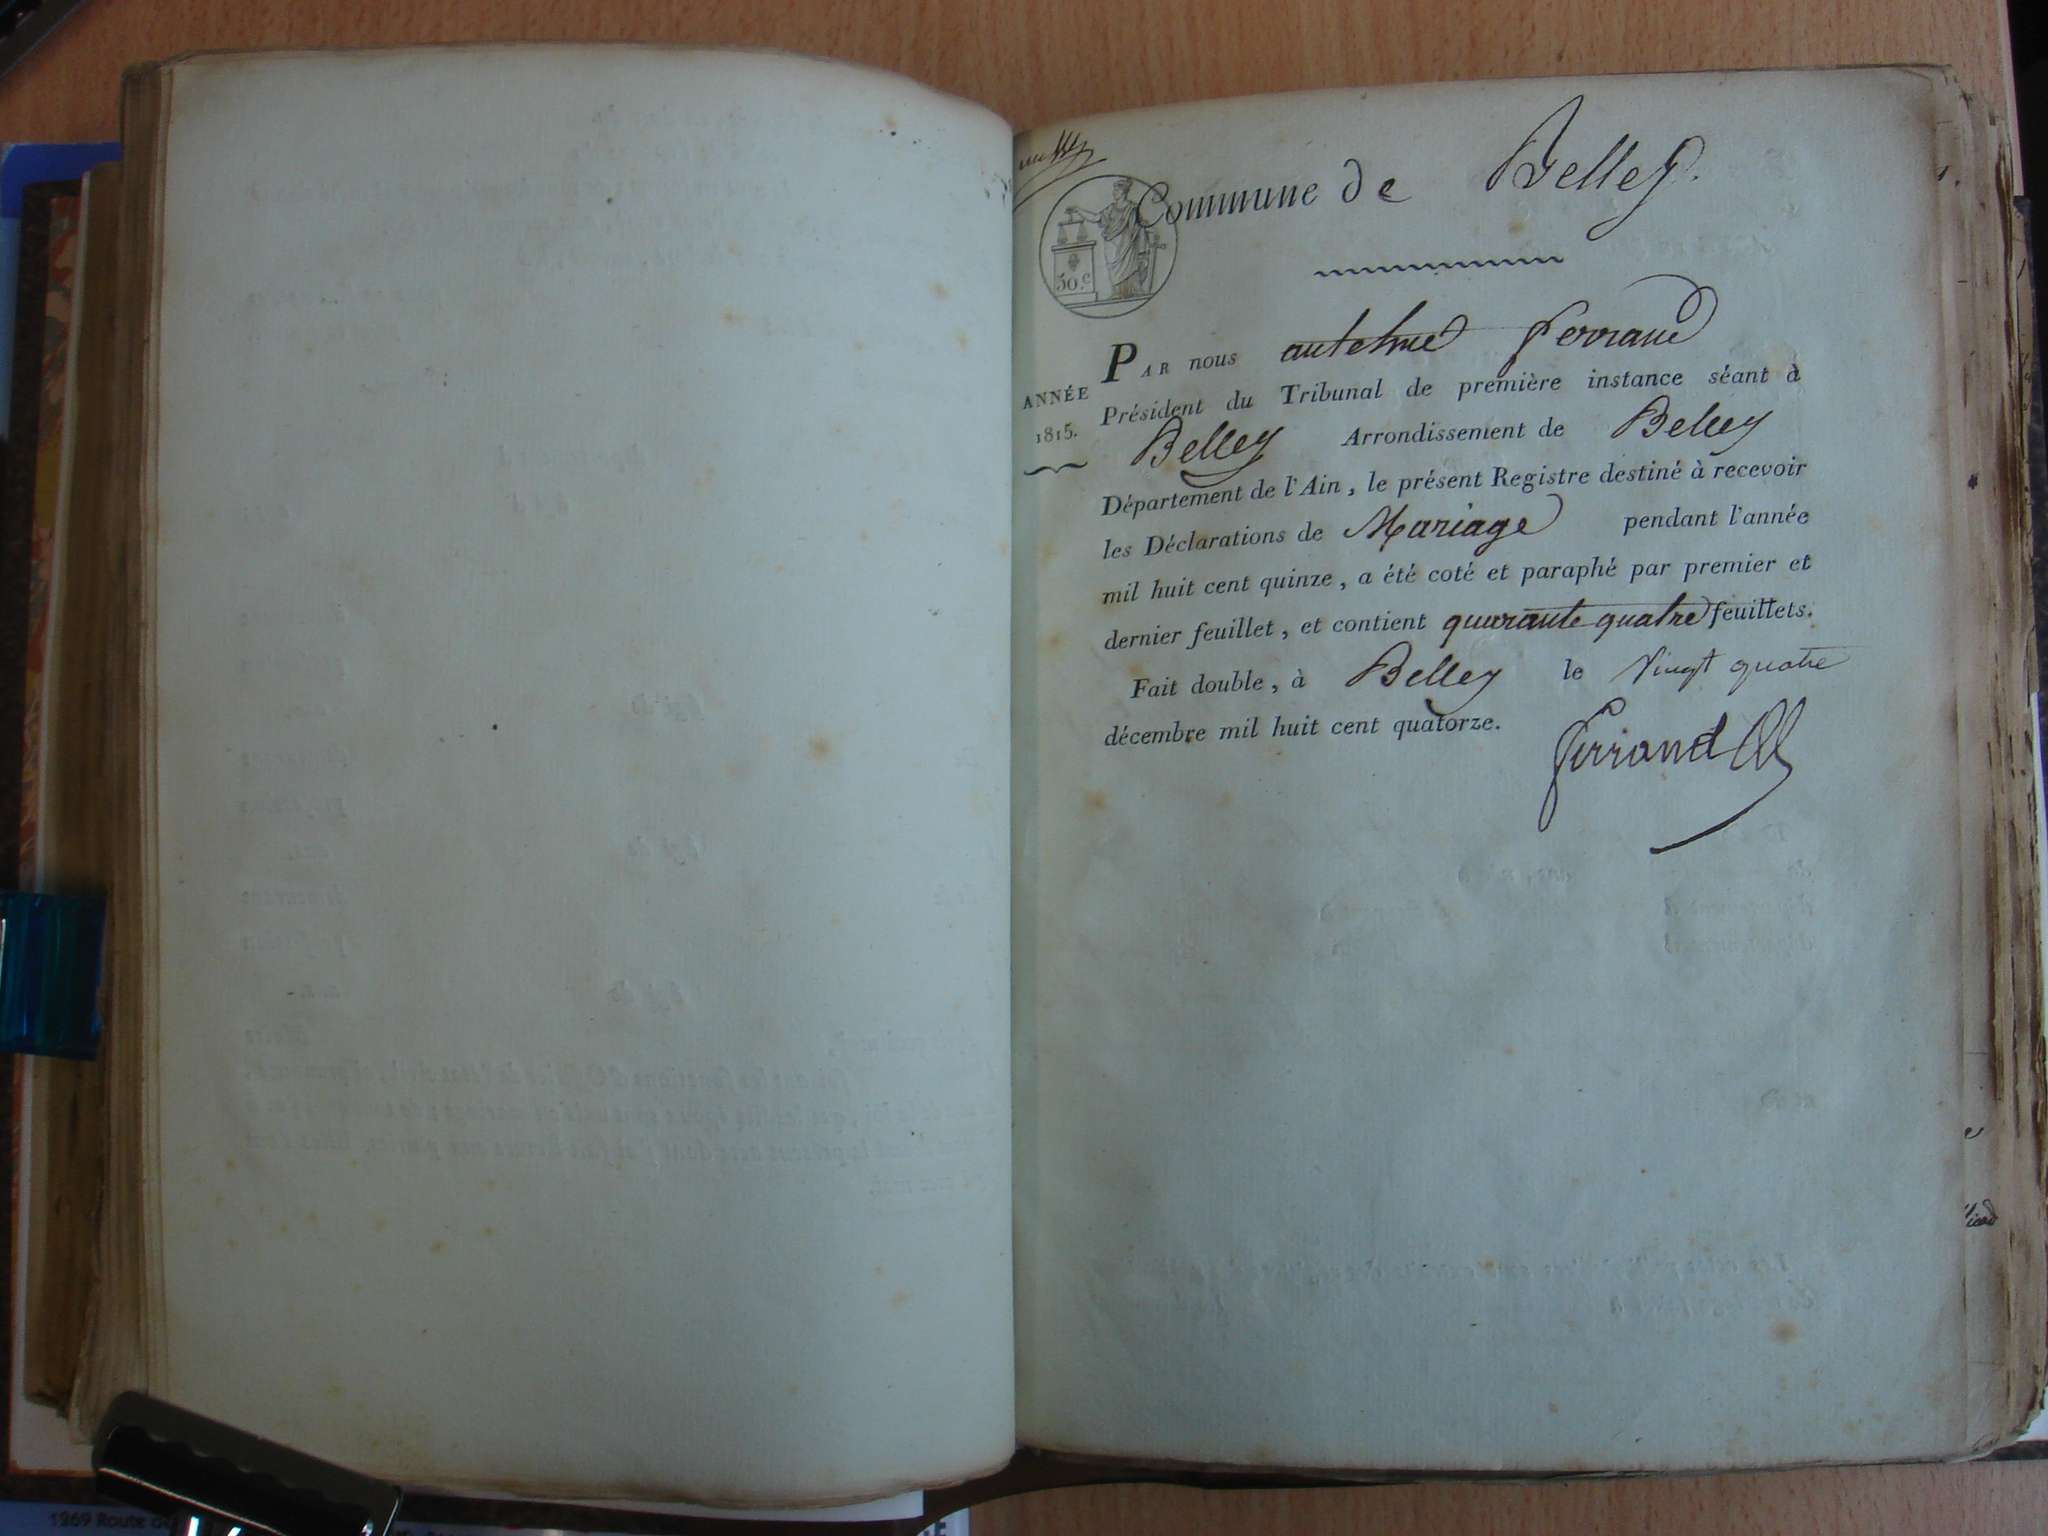 Commune de Belley.
50.c
ANNÉE
1815.
PAR nous antelme ferrand
Président du Tribunal de première instance séant à
Belley Arrondissement de Belley
Département de l'Ain, le présent Registre destiné à recevoir
les Déclarations de Mariage pendant l'année
mil huit cent quinze, a été coté et paraphé par premier et
dernier feuillet, et contient quarante quatre feuillets.
Fait double, à Belley le vingt quatre
décembre mil huit cent quatorze.
ferrand
1269 Route de